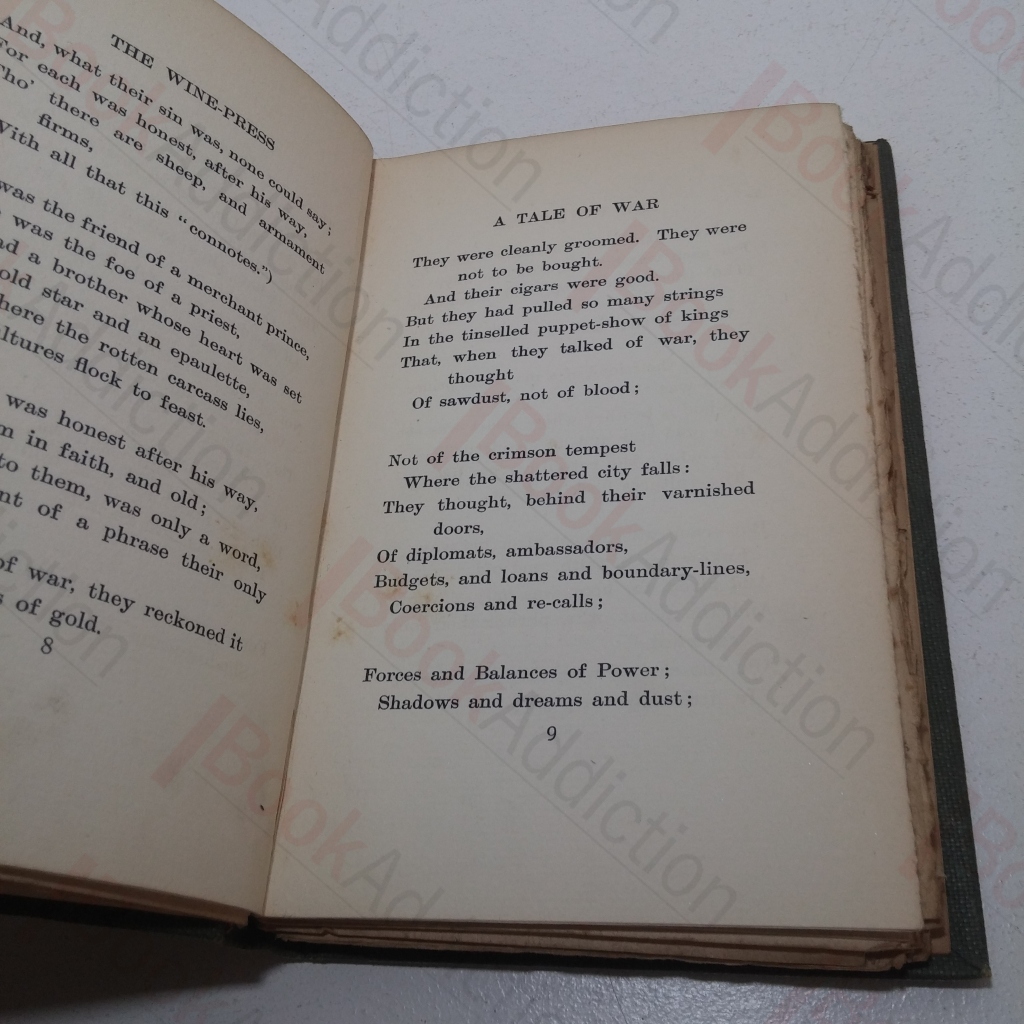 THE WINE-PRESS
And, what their sin was, none could say;
For each was honest, after his way,
Tho' there are sheep, and armament
firms,
With all that this "connotes.")
was the friend of a merchant prince,
was the foe of a priest,
a brother whose heart was set
old star and an epaulette,
where the rotten carcass lies,
flock to feast.
was honest after his way,
in faith, and old;
to them, was only a word,
of a phrase their only
of war, they reckoned it
of gold.
8
A TALE OF WAR
They were cleanly groomed. They were
not to be bought.
And their cigars were good.
But they had pulled so many strings
In the tinselled puppet-show of kings
That, when they talked of war, they
thought
Of sawdust, not of blood;
Not of the crimson tempest
Where the shattered city falls:
They thought, behind their varnished
doors,
Of diplomats, ambassadors,
Budgets, and loans and boundary-lines,
Coercions and re-calls;
Forces and Balances of Power;
Shadows and dreams and dust;
9
BookAddiction